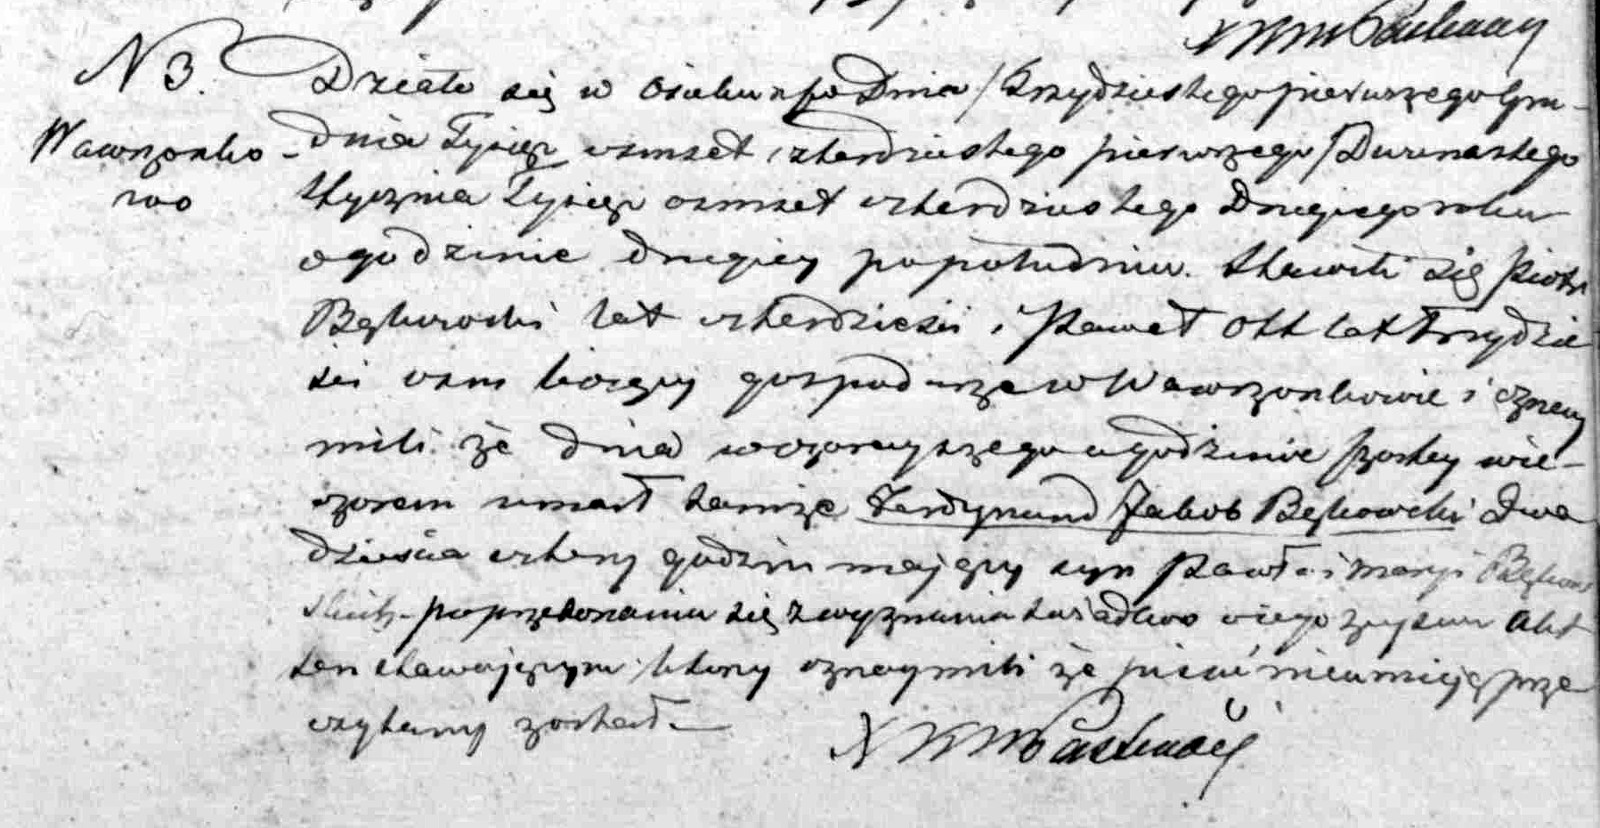 N 3. Działo się w Osieku / Dnia / Trzydziestego pierwszego Gru-
Wawrzonko- dnia Tysiąc osmset czterdziestego pierwszego / Dwunastego
wo Stycznia Tysiąc osmset czterdziestego Drugiego roku
o godzinie drugiey popołudniu. Stawili się Piotr
Bękowski lat czterdzieści i Paweł Ott lat Trzydzie
ści osm liczący gospodarze w Wawrzonkowie i oznay
mili że dnia wczorayszego o godzinie szostey wie-
czorem umarł tamże Ferdynand Jakob Bękowski dwa
dzieścia cztery godzin maiący syn Pawła i Maryi Bękows
kich - po przekonaniu się z wyznania świadkow o iego zgonie Akt
ten stawaiącym ktory oznaymili że pisać nieumieią prze
czytany został